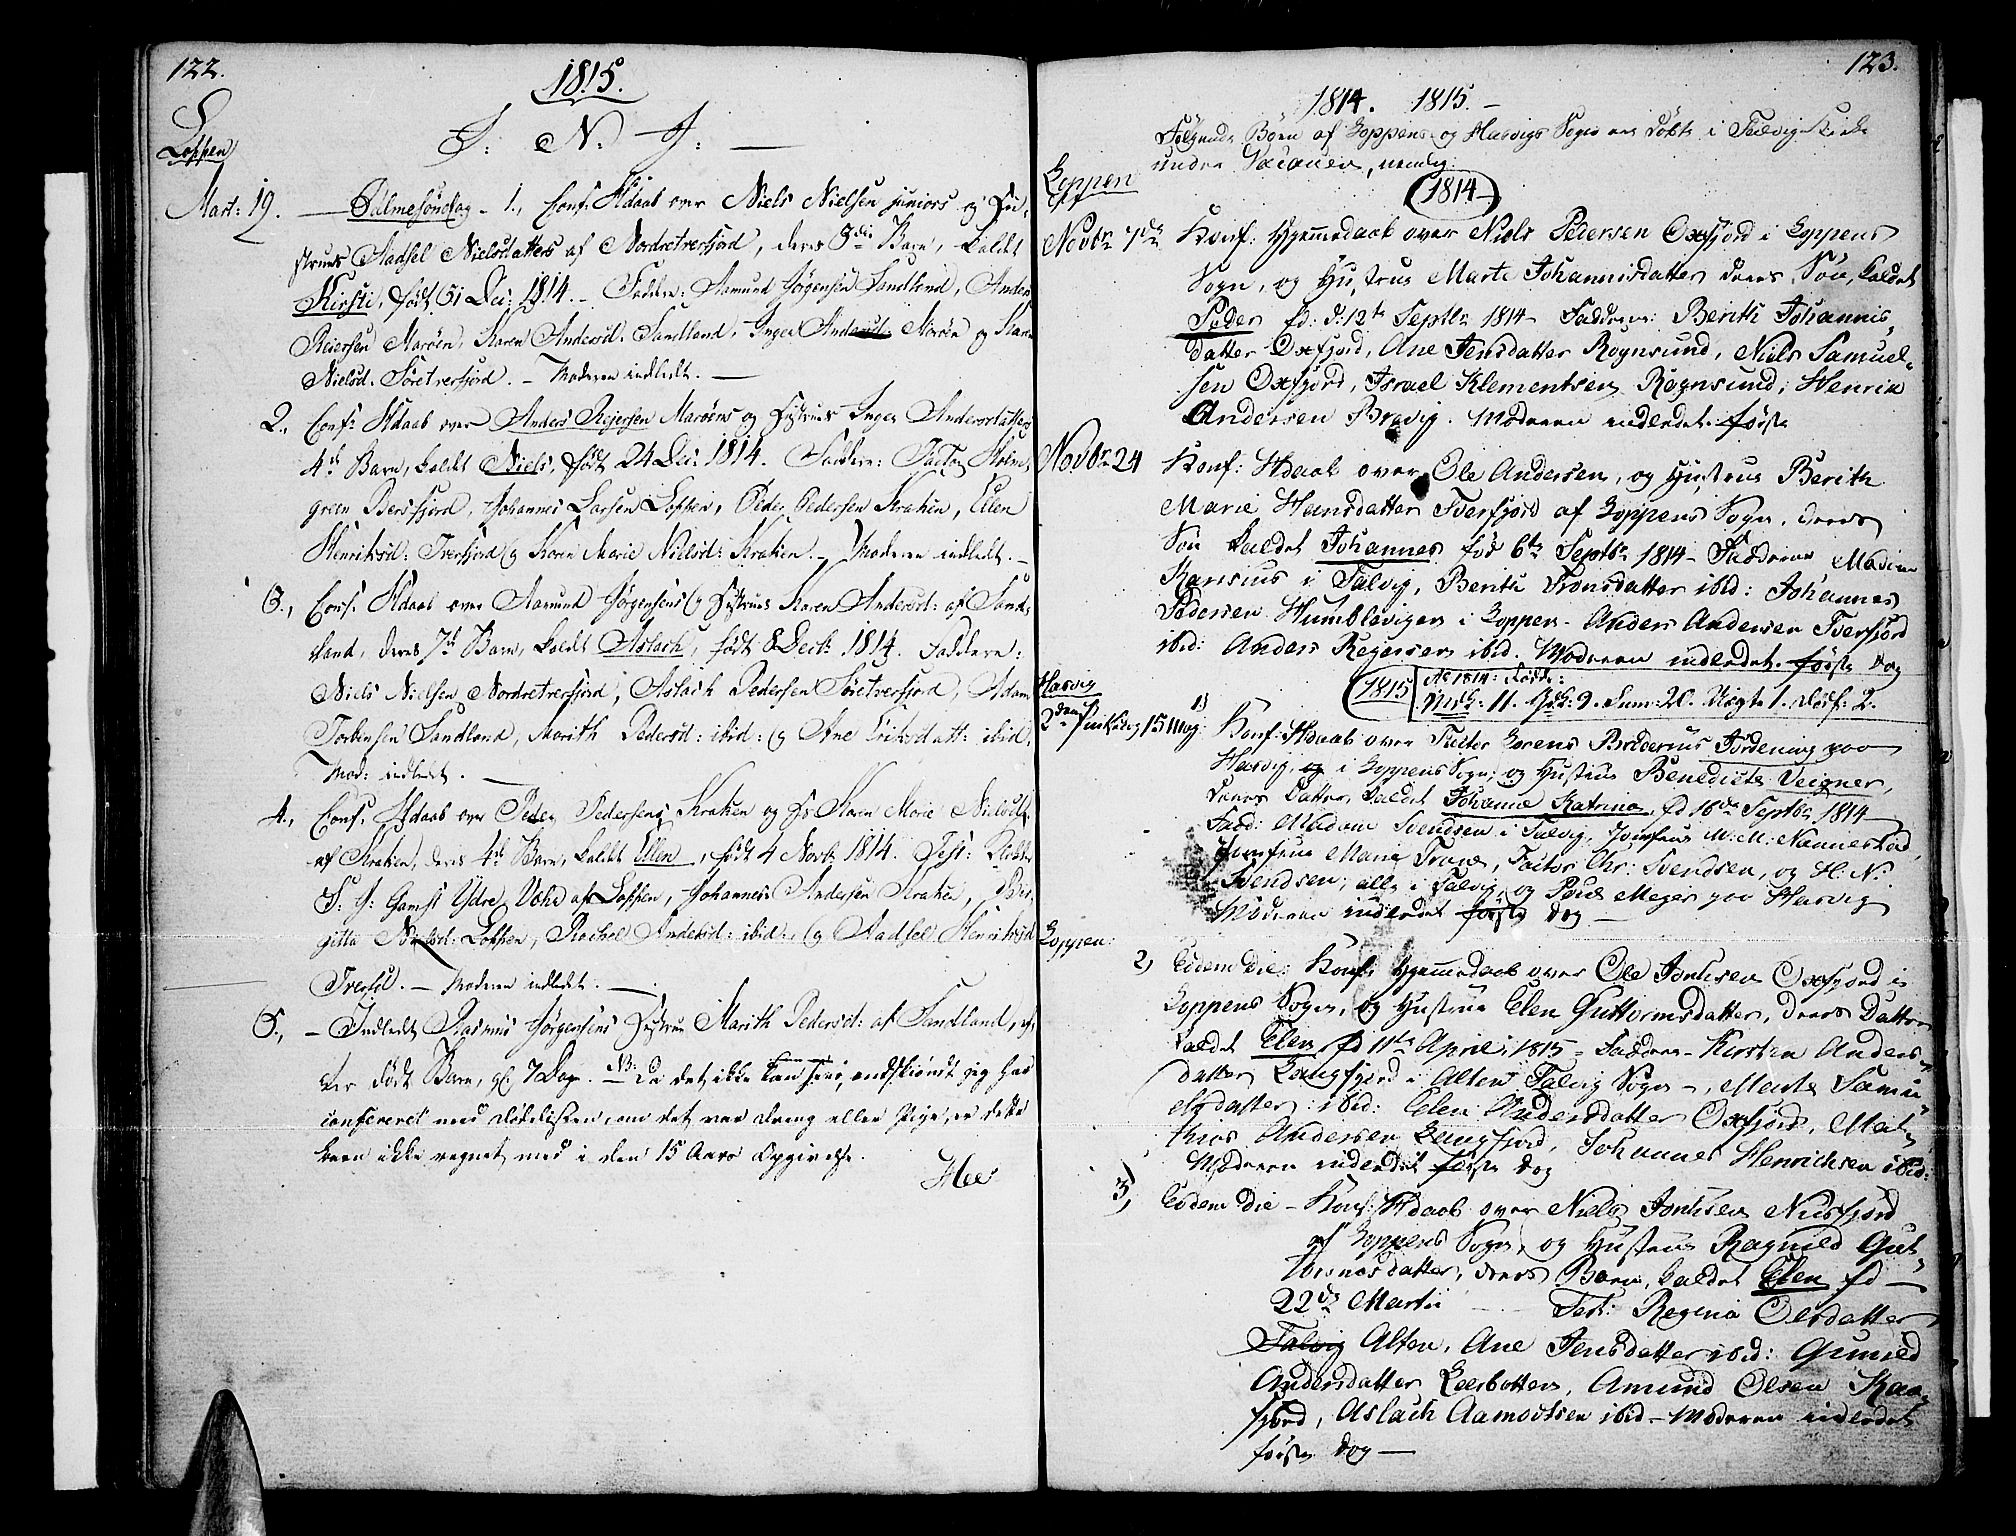 122.
1815.
Loppen
J: N: J:
Mart: 19. Palmesöndag - 1., Conf: Hdaab over Niels Nielsen juniors og Hu-
strues Aadsel Nielsdatters af Nordretverfjord, deres 3die Barn, kaldt
Kirsti, født 31 Dec: 1814. - Faddere: Aamund Jørgensen Sandland, Anders
Reiersen Marøen, Karen Andersd. Sandland, Inger Andersd: Marøen og Karen
Nielsd. Søretverfjord. - Moderen indledt. -
2., Conf: Hdaab over Anders Rejersen Marøens og Hustrues Inger Andersdatters
4de Barn, kaldt Niels, født 24 Dec: 1814. Faddere: Factor Holm-
green Bersfjord, Johannes Larsen Loppen, Peder Pedersen Kraken, Ellen
Henriksd: Tverfjord og Karen Marie Nielsd: Kraken. - Moderen indledt. -
3., Conf: Hdaab over Aamund Jørgensens og Hustrues Karen Andersd: af Sand-
land, deres 7de Barn, kaldt Aslach, født 8 Decb: 1814. Faddere:
Niels Nielsen Nordretverfjord, Aslach Pedersen Søretverfjord, Adam
Torbensen Sandland, Marith Pedersd: ibid: og Ane Eriksdatt: ibid.
Mod: indledt. -
4., Conf: Hdaab over Peder Pedersens Kraken og Hs Karen Marie Nielsd:
af Kraken, deres 4de Barn, kaldt Ellen, født 4 Novb: 1814. Test:
S: J: Gamst Ydre af Loppen, Johannes Andersen Kraken, Bir-
gitta Nielsd: Loppen, Rachel Andersd: ibid:, og Aadsel Henriksd
Tverfd. - Moderen indledt. -
5., - Indledt Rasmus Jørgensens Hustrue Marith Pedersd: af Sandland, ef-
ter død Barn, gl. 7 Dage. NB: Da det ikke kan sees, endskiøndt jeg har
confereret med Dødslisten, om det var Dreng eller Pige, er dette
Barn ikke regnet med i den 15 Aars Opgivelse.
123.
1814. 1815. -
Følgende Børn af Loppens og Hasvigs Sogn ere døbte i Talvig Kirke
under Vacancen, nemlig:
Loppen
1814
Novbr 7de Konf: Hjemmedaab over Niels Pedersen Oxfjord i Loppens
Sogn, og Hustrue Marte Johannisdatter deres Søn, kaldet
Peder fd: d: 12te Septbr 1814 - Faddere: Berith Johannis-
datter Oxfjord, Ane Jensdatter Rognsund, Niels Samuel-
sen Oxfjord, Israel Klementsen Rognsund, Henrik
Andersen Bravig. Moderen indledet første
Novbr 24 Konf: Hdaab over Ole Andersen, og Hustrue Berith
Marie Hansdatter Tverfjord af Loppens Sogn, deres
Søn kaldet Johannes fød 6te Septbr 1814 - Faddere Madam
i Talvig, Berith Tronsdatter ibid: Johannes
Pedersen Humblevigen i Loppen - Anders Andersen Tverfjord
ibid: Anders Rejersen ibid. Moderen indledet første Dag
1815 Ao 1814: Fødde:
Mdk: 11. Qdk: 9. Sum: 20. 1. Dødf: 2.
Hasvig
2den Pintsedag 15 Maj
1) Konf: Hdaab over Factor Lorens Buderus Fordening paa
Hasvig, og i Loppens Sogn, og Hustrue Benedicte Veigner,
deres Datter, kaldet Johanne Katrina fd 16de Septbr 1814
Fadd: Madam Svendsen i Talvig, Jomfrue M: M: Nannestad,
Jomfrue Marie Trane, Factor Chr: Svendsen, og H: N:
Svendsen, alle i Talvig og Povel Mejer paa Hasvig
Moderen indledet første Dag -
Loppen:
2) Eodem die: Konf: Hjemmedaab over Ole Jonsen Oxfjord i
Loppens Sogn, og Hustrue Elen Guttormsdatter, deres Datter
kaldet Elen fd 11te April: 1815 - Faddere - Kirsten Anders-
datter Langfjord i Alten Talvig Sogn -, Marte Samu-
elsdatter: ibid: Elen Andersdatter Oxfjord, Mat-
thios Andersen Langfjord, Johannes Henrichsen ibid:
Moderen indledet første Dag
3) Eodem die - Konf: Hdaab over Niels Jonsen Nusfjord
af Loppens Sogn, og Hustrue Ragnild Gut-
tormsdatter, deres Barn, kaldet Elen fd -
22de Martii Test: Regina Olsdatter
Talvig Alten, Ane Jensdatter ibid: Gunild
Andersdatter Leerbotten, Amund Olsen Kaa-
fjord, Aslach Aamodtsen ibid - Moderen indledet
første Dag -